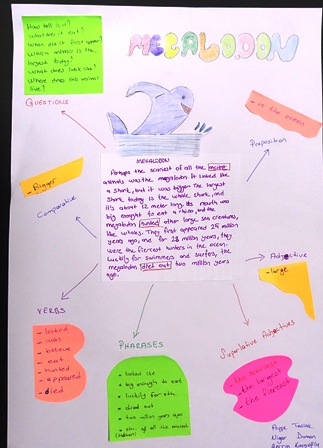 How tall is it?
What does it eat?
When did it first appear?
Which animal is the
largest today?
What does look like?
Where does this animal
live?
MEGALODON
QUESTIONS
- in the ocean
Preposition
- Bigger
Comparative
MEGALODON
Perhaps the scariest of all the ancient
animals was the megalodon. It looked like
a shark, but it was bigger. The largest
shark today is the whale shark, and
it's about 12 meter long. Its mouth was
big enought to eat a rhino and the
megalodon hunted other large sea creatures,
like whales. They first appeared 25 million
years ago, and for 23 million years, they
were the fiercest hunters in the ocean.
Luckily for swimmers and surfers, the
megalodon died out two million years
ago.
Adjective
- large
VERBS
- looked
- was
- believe
- eat
- hunted
- appeared
- died
PHARASES
- looked like
- big enough to eat
- luckily for
- died out
- two million years ago
- of all the ancient
Superlative Adjectives
- the scariest
- the largest
- the fiercest